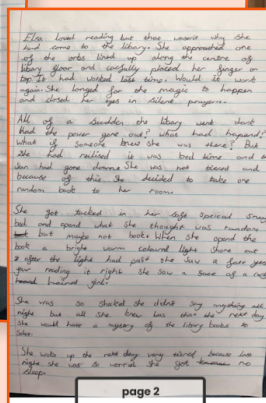 Elsa loved reading but that wasn't why she
had come to the library. She approached one
of the orbs lined up along the centre of
library floor and carefully placed her finger on
top. It had worked last time. Would it work
again. She longed for the magic to happen
and closed her eyes in silent prayers.
All of a Sudden the library went dark
Had the power gone out? What had happend?
What if someone knew she was there? But
she had realised it was bed time and
had gone She was not tiered and
because of this She decided to take one
random book to her room.
She got tucked in her Speical
bed and opend what she thought was random
but maybe not book. When she opend the
book a bright warm coloured light shone out
after the light had past she saw a
reading it right she saw a face of a
haired girl.
She was so shocked she didn't say anything all
night but all she knew was that the next day
She would have a mystery of the library books to
She woke up the next day very tiered because last
night she was so worried she got no
sleep.
page 2